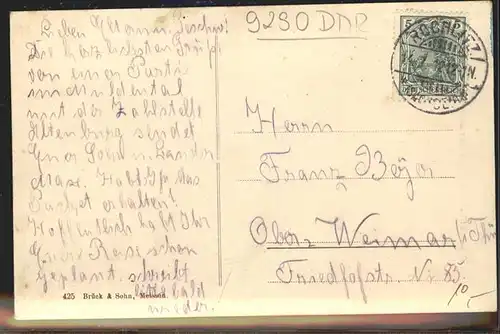 Lieben Eltern u. Geschw!
Die herzlichsten Grüße
von einer Partie
im Muldental
mit der Zahlstelle
Altenburg sendet
Euer Sohn u. Bruder
Max. Habt Ihr das
Packet erhalten?
Hoffentlich habt Ihr
Eure Reise schon
geplant. schreibt
bitte bald
wieder.
425 Brück & Sohn, Meissen.
9230 DDR
5
ROCHLITZ
Herrn
Franz
Ober-Weimar i/Thür
Friedhofstr. Nr. 85.
10.-